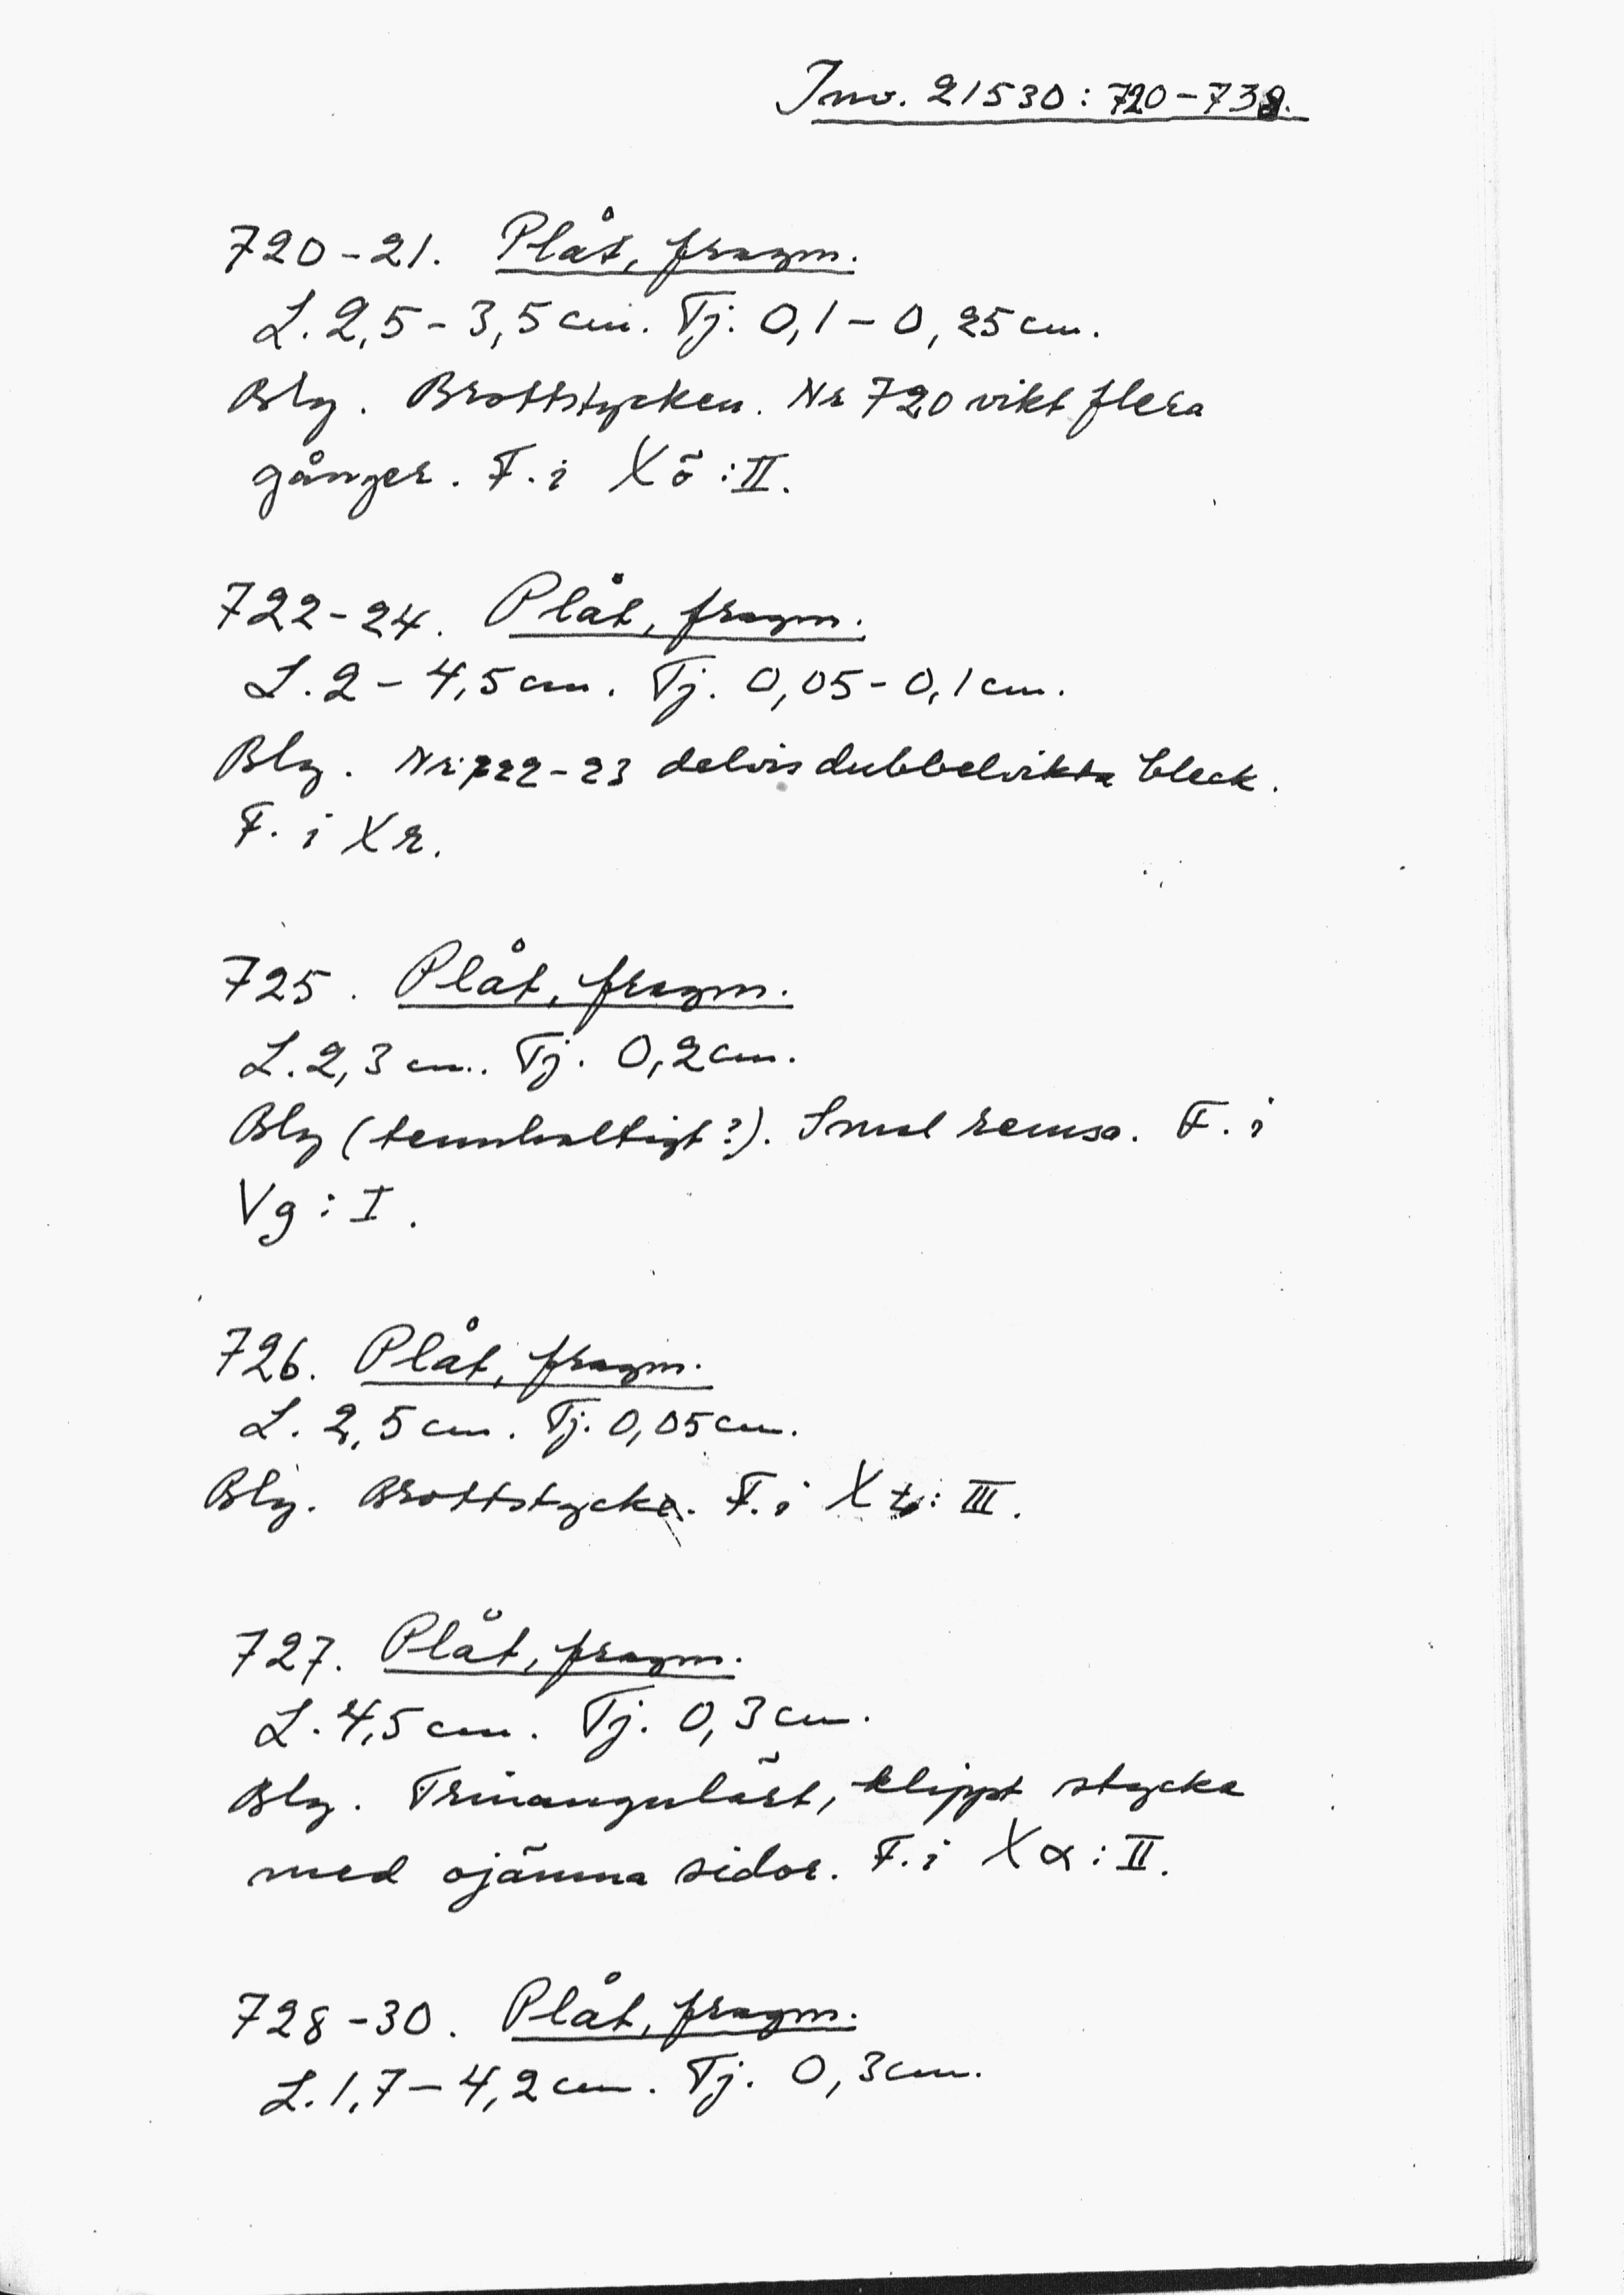 Inv. 21530:720-738.
720-21. Plåt, fragm.
L. 2,5-3,5 cm. Tj. 0,1-0,25 cm.
Bly. Brottstycken. Nr 720 vikt flera
gånger. F. i Xö:II.
722-24. Plåt, fragm.
L. 2-4,5 cm. Tj. 0,05-0,1 cm.
Bly. Nr 722-23 delvis dubbelvikta bleck.
F. i Xr.
725. Plåt, fragm.
L. 2,3 cm. Tj. 0,2 cm.
Bly (tennhaltigt?). Smal remsa. F. i
Vg:I.
726. Plåt, fragm.
L. 2,5 cm. Tj. 0,05 cm.
Bly. Brottstycke. F. i : III.
727. Plåt, fragm.
L. 4,5 cm. Tj. 0,3 cm.
Bly. Triangulärt, klippt stycke
med ojämna sidor. F. i Xα:II.
728-30. Plåt, fragm.
L. 1,7-4,2 cm. Tj. 0,3 cm.